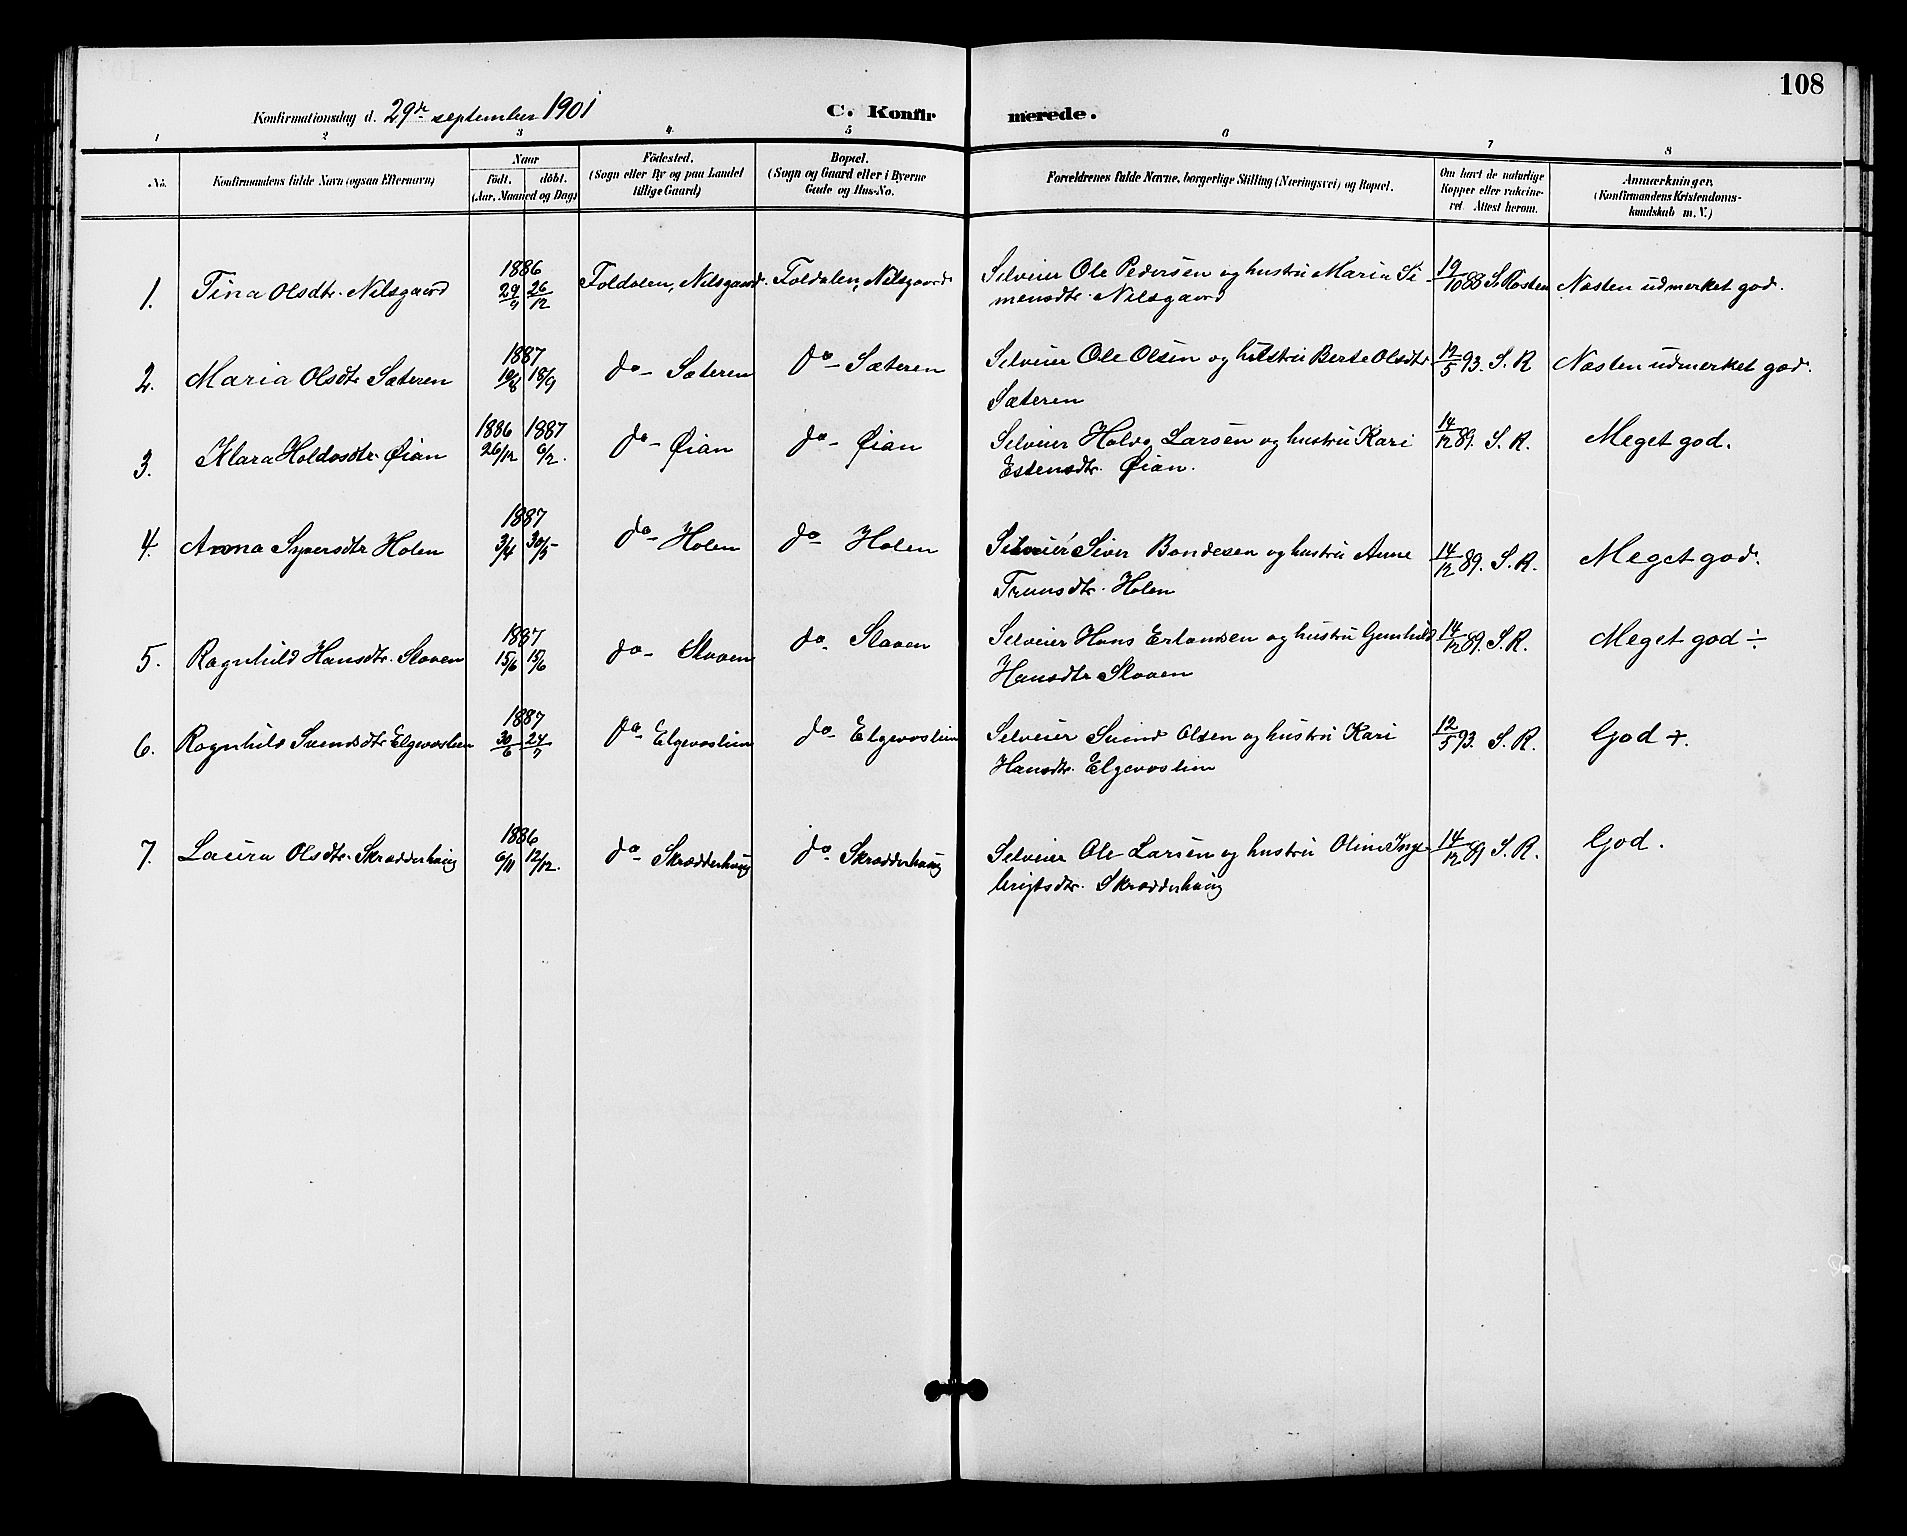 108
Konfirmationsdag d. 29de september 1901 C. Konfirmerede.
1 2 3 4. 5 6 7 8
No. Konfirmandens fulde Navn (ogsaa Efternavn) Naar Födt. döbt. (Aar, Maaned og Dag) Födested. (Sogn eller By og paa Landet tillige Gaard) Bopæl. (Sogn og Gaard eller i Byerne Gade og Hus-No. Forældrenes fulde Navne, borgerlige Stilling (Næringsvei) og Bopæl. Om havt de naturlige Kopper eller vakcineret. Attest herom. Anmærkninger, (Konfirmandens Kristendomskundskab m. V.)
1. Tina Olsdtr. Nilsgaard 1886 29/9 26/12 Foldalen, Nilsgaard. Foldalen, Nilsgaard Selveier Ole Pedersen og hustru Maria Si- 19/10 88 S. Rosten Næsten udmerket god.
mensdtr. Nilsgaard
2. Maria Olsdtr Sæteren 1887 10/8 18/9 do - Sæteren do - Sæteren Selveier Ole Olsen og hustru Berte Olsdtr 12/5 93. S. R Næsten udmerket god.
Sæteren
3. Klara Holdosdtr. Øian 1886 26/12 1887 6/2. do - Øian do - Øian Selveier Holdo Larsen og hustru Kari 14/12 89. S. R. Meget god.
Estensdtr. Øian.
4. Anna Syversdtr Holen 1887 3/4 30/5 do - Holen do Holen Selveier Siver Bondesen og hustru Anne 14/12 89. S. R. Meget god.
Trunsdtr. Holen
5. Ragnhild Hansdtr. Slaaen 1887 15/6 15/6 do - Slaaen do. Slaaen Selveier Hans Erlandsen og hustru Gunhild 14/12 89. S. R. Meget god ÷
Hansdtr Slaaen
6. Ragnhild Svendsdtr Elgevaslien 1887 30/6 24/7 do Elgevaslien do. Elgevaslien Selveier Svend Olsen og hustru Kari 12/5 93. S. R. God +.
Hansdtr. Elgevaslien
7. Laura Olsdtr. Skrædderhaug 1886 6/11 12/12. do Skrædderhaug do. Skrædderhaug Selveier Ole Larsen og hustru Oline Inge- 14/12 89 S. R. God.
brigtsdtr. Skrædderhaug